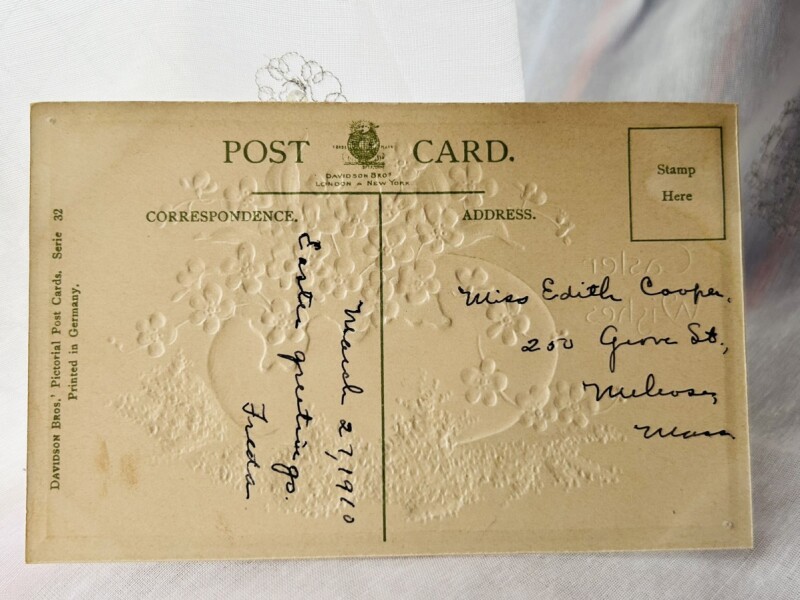 POST CARD.
DAVIDSON BROS
LONDON & NEW YORK
CORRESPONDENCE.
ADDRESS.
Stamp
Here
DAVIDSON BROS.' Pictorial Post Cards. Serie 32
Printed in Germany.
March 27, 1910
Easter greetings.
Freda.
Miss Edith Cooper,
200 Grove St.,
Melrose,
Mass
Easter
Wishes